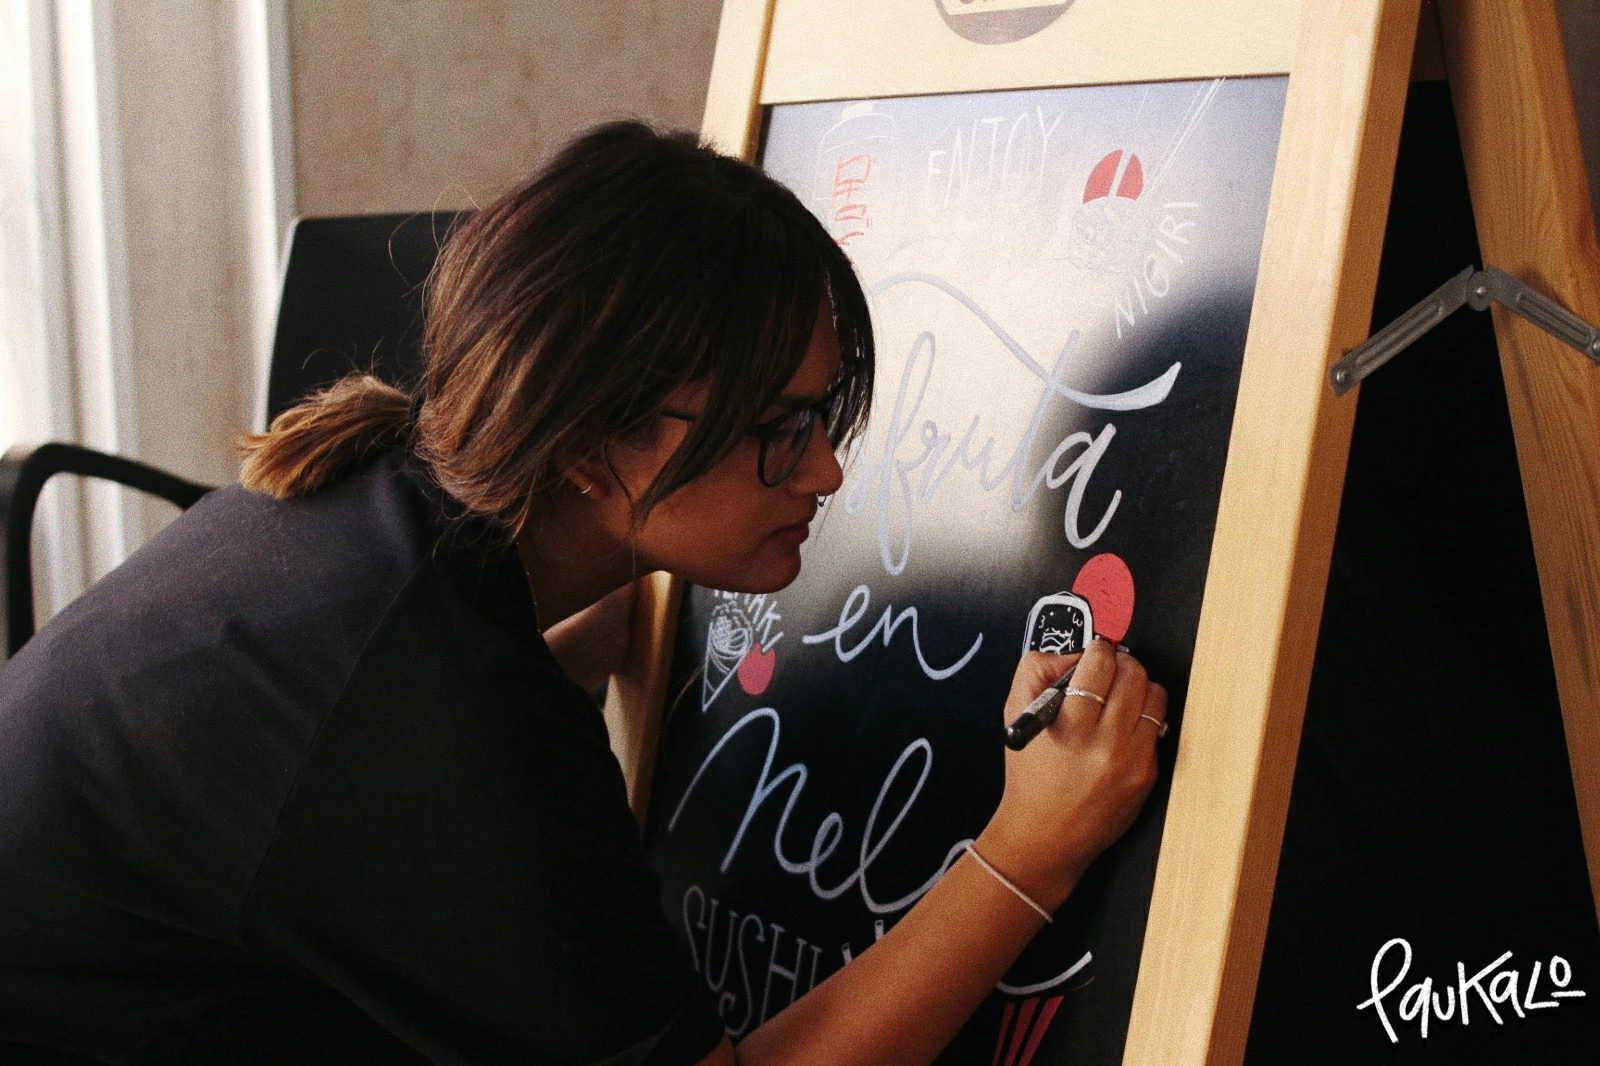 ENJOY
NIGIRI
sfruta
en
Nelo
SUSHI
PauKaLo